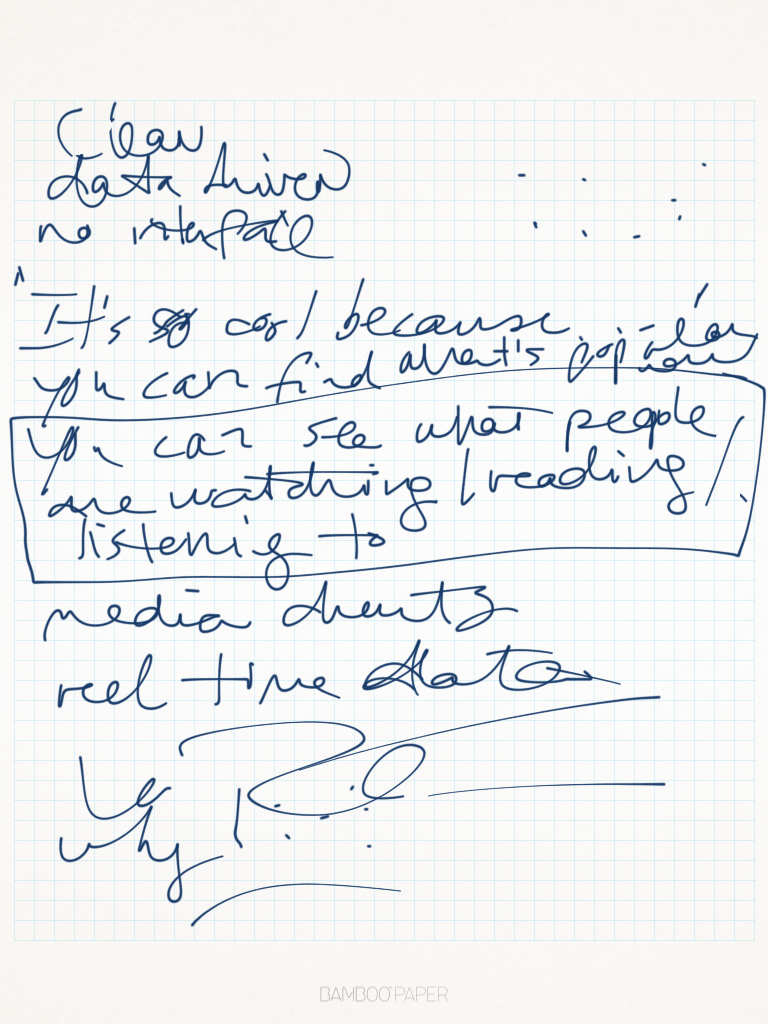 Clean
data driven
no interface
"It's so cool because
you can find what's popular
You can see what people
are watching / reading /
listening to
media
reel time data
why
BAMBOO PAPER